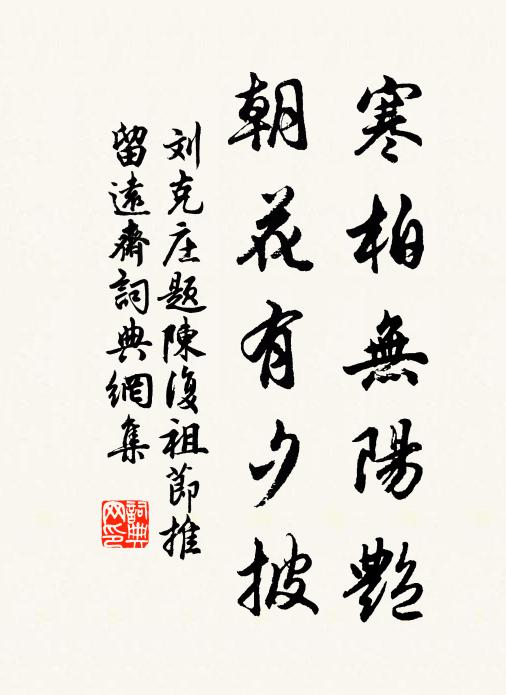 寒柏無陽艷
朝花有夕披
刘克庄題陳復祖節推
留遠齋詞典網集
詞典网印